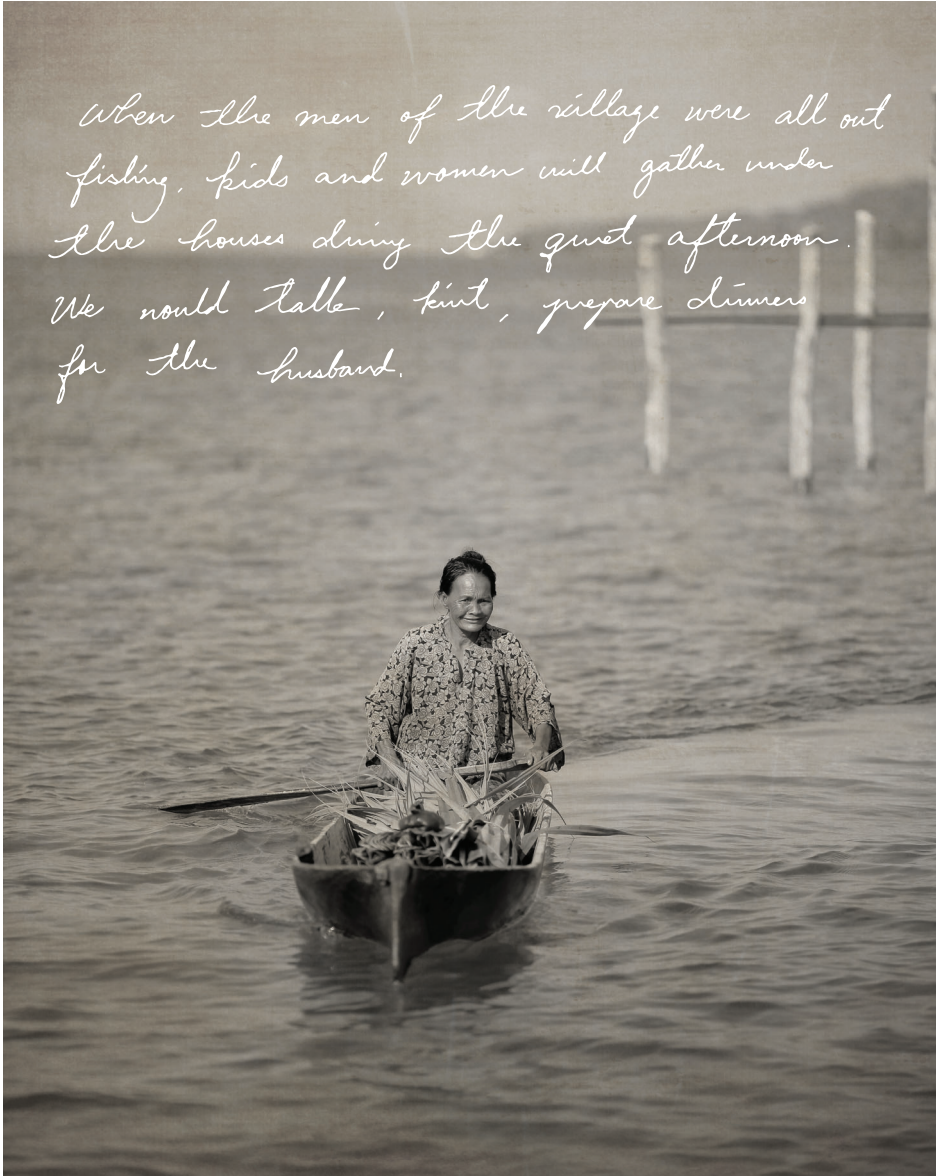 When the men of the village were all out
fishing, kids and women will gather under
the houses during the quiet afternoon.
We would talk, knit, prepare dinners
for the husband.